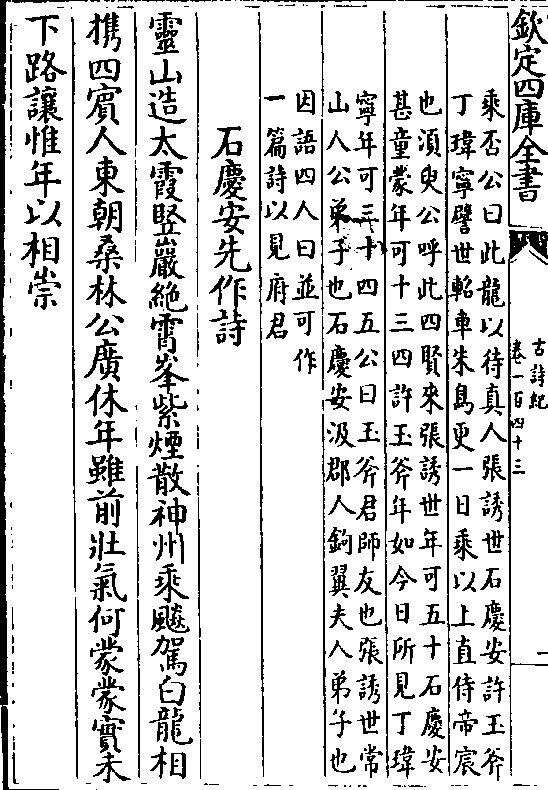 欽定四庫全書
古詩紀
卷一百四十三
二
乘否公曰此龍以待真人張誘世石慶安許玉斧
丁瑋寧譬世軺車朱鳥更一日乘以上直侍帝宸
也須臾公呼此四賢來張誘世年可五十石慶安
甚童蒙年可十三四許玉斧年如今日所見丁瑋
寧年可三十四五公曰玉斧君師友也張誘世常
山人公弟子也石慶安汲郡人鉤翼夫人弟子也
因語四人曰並可作
一篇詩以見府君
石慶安先作詩
靈山造太霞豎巖絶霄峯紫煙散神州乘飇駕白龍相
携四賓人東朝桑林公廣休年雖前壯氣何蒙蒙實未
下路讓惟年以相崇